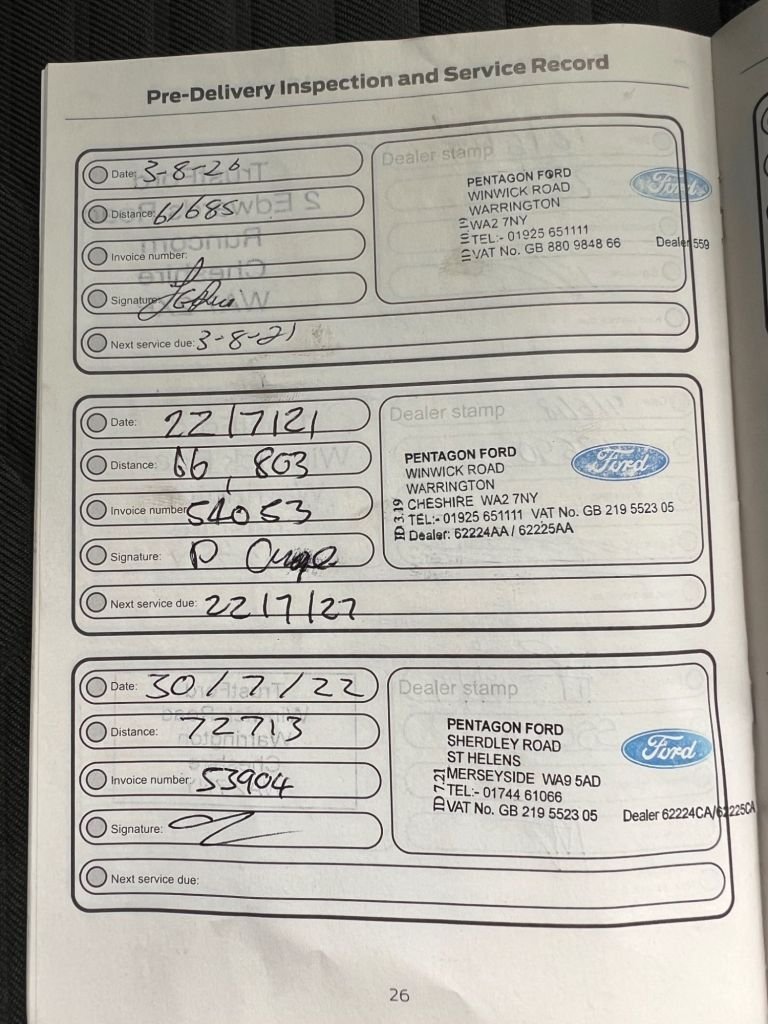 Pre-Delivery Inspection and Service Record
Date: 3-8-20
Distance: 61685
Invoice number:
Signature:
Next service due: 3-8-21
Dealer stamp
PENTAGON FORD
WINWICK ROAD
WARRINGTON
WA2 7NY
TEL:- 01925 651111
VAT No. GB 880 9848 66
Dealer 559
Ford
Date: 22/7/21
Distance: 66,803
Invoice number: 54053
Signature: P
Next service due: 22/7/22
Dealer stamp
PENTAGON FORD
WINWICK ROAD
WARRINGTON
CHESHIRE WA2 7NY
TEL:- 01925 651111 VAT No. GB 219 5523 05
Dealer: 62224AA / 62225AA
ID 3.19
Ford
Date: 30/7/22
Distance: 72713
Invoice number: 53904
Signature:
Next service due:
Dealer stamp
PENTAGON FORD
SHERDLEY ROAD
ST HELENS
MERSEYSIDE WA9 5AD
TEL:- 01744 61066
VAT No. GB 219 5523 05
Dealer 62224CA/62225CA
ID 7.21
Ford
26